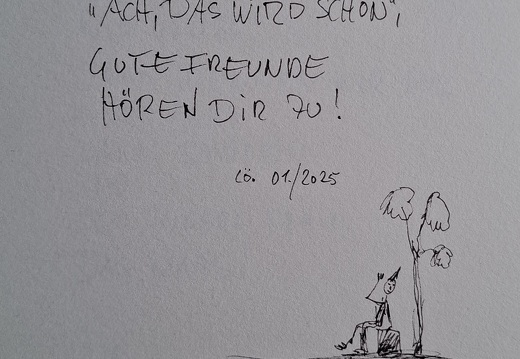 "ACH, DAS WIRD SCHON",
GUTE FREUNDE
HÖREN DIR ZU!
LÖ. 01/2025